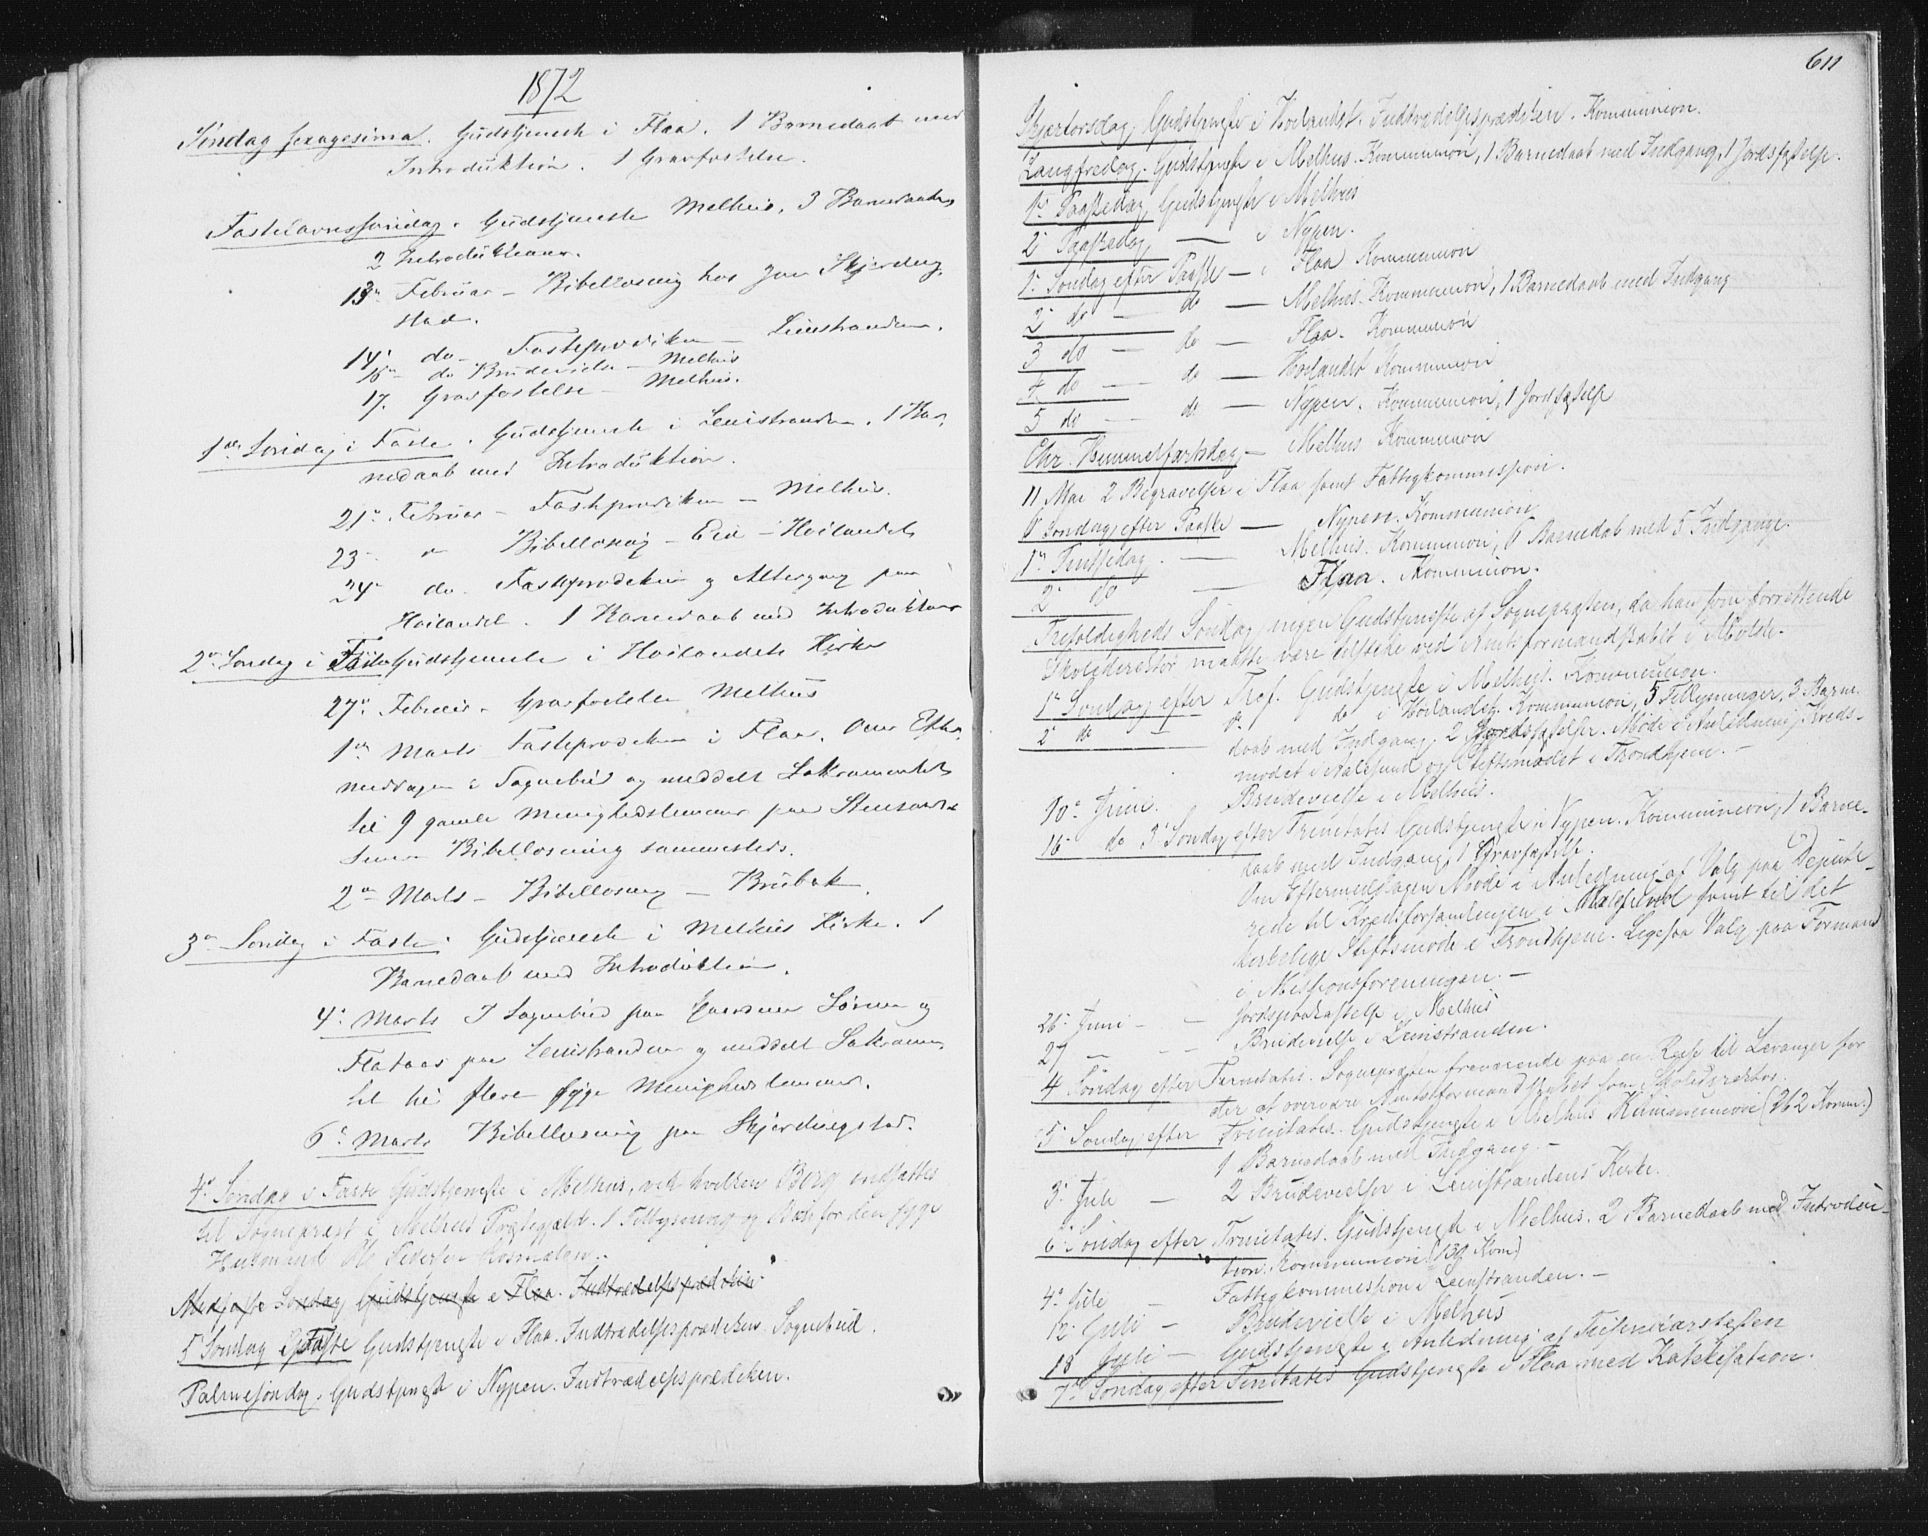 1872
Søndag sexagesima. Gudstjeneste i Flaa. 1 Barnedaab med
Introduktion. 1 Gravfæstelse.
Fastelavnssøndag. Gudstjeneste Melhus. 3 Barnedaab
2 Introduktioner.
13de Februar – Bibellæsning hos Jon Skjerding
stad.
14de do – Fasteprædiken – Leinstranden.
16de do Brudevielse – Melhus
17. Gravfæstelse – Melhus.
1ste Søndag i Faste. Gudstjeneste i Leinstranden. 1 Bar
nedaab med Introduktion.
21de Februar – Fasteprædiken – Melhus.
23 – Bibellæsning – Eid – Høilandet
24de do. Fasteprædiken og Altergang paa
Høilandet. 1 Barnedaab med Introduktion
2den Søndag i Faste Gudstjeneste i Høilandets Kirke
27de Februar – Gravfæstelse Melhus
1ste Marts Fasteprædiken i Flaa. Om Efter
middagen i Sognebud og meddelt Sakramentet
til 9 gamle Menighedslemmer paa
Bibellæsning sammesteds.
2den Marts – Bibellæsning – Brubak.
3die Søndag i Faste. Gudstjeneste i Melhus Kirke. 1
Barnedaab med Introduktion.
4de Marts I Sognebud paa og
paa Leinstranden og meddelt Sakramen
tet til flere syge Menighedslemmer.
6te Marts Bibellæsning paa Skjerdingstad.
4de Søndag i Faste Gudstjeneste i Melhus, ved hvilken Berg indsattes
til Sogneprest i Melhus Præstegjæld. 1 Tillysning og Bøn for den syge
Husmand Ole Pedersen
Midfaste Søndag Gudstjeneste i Flaa. Indtrædelsesprædiken.
5 Søndag i Faste Gudstjeneste i Flaa. Indtrædelsesprædiken. Sognebud.
Palmesøndag. Gudstjeneste i Nypen. Indtrædelsesprædiken.
611
Skjærtorsdag, Gudstjeneste i Høilandet. Indtrædelsesprædiken. Kommunion.
Langfredag. Gudstjeneste i Melhus. Kommunion, 1 Barnedaab med Indgang, 1 Jordfæstelse.
1ste Paaskedag, Gudstjeneste i Melhus
2 Paaskedag, — i Nypen.
1. Søndag efter Paaske – i Flaa Kommunion
2 do — do — Melhus. Kommunion, 1 Barnedaab med Indgang
3 do — do — Flaa. Kommunion
4 do — do — Høilandet Kommunion
5 do — do — Nypen. Kommunion, 1 Jordfæstelse
Chr. Himmelfartsdag – Melhus Kommunion
11 Mai 2 Begravelser i Flaa samt Fattigkommission.
6 Søndag efter Paaske — Nypen. Kommunion
1ste Pintsedag. — Melhus. Kommunion, 6 Barnedaab med 5 Indgange.
2 do — Flaa. Kommunion.
Trefoldigheds Søndag, ingen Gudstjeneste af Sognepresten, da han som forrettende
Skoledirektør maatte være tilstede ved Amtsformandskabet i Molde.
1ste Søndag efter Tref. Gudstjeneste i Melhus. Kommunion.
2 do – do do i Høilandet. Kommunion, 5 Tillysninger, 3 Barne
daab med Indgang, 2 Jordfæstelser. Møde i Anledning Kreds-
mødet i Aalesund og Stiftsmødet i Trondhjem. –
10de Juni. Brudevielse i Melhus.
16 do 3 Søndag efter Trinitatis Gudstjeneste i Nypen. Kommunion, 1 Barne-
daab med Indgang, 1 Gravfæstelse.
Om Eftermiddagen Møde i Anledning af Valg paa Depute-
rede til Kredsforsamlingen i Aalesund samt til det
kirkelige Stiftsmøde i Trondhjem. Ligesaa Valg paa Formand
i Missionsforeningen. –
26de Juni – – Jordspaakastelse i Melhus
27 – – – Brudevielse i Leinstranden.
4 Søndag efter Trinitatis. Sognepresten fraværende paa en Reise til Levanger for
der at overvære Amtsformandskabet som Skoledirektør.
5 Søndag efter Trinitatis. Gudstjeneste i Melhus Kommunion (262 Komm.)
1 Barnedaab med Indgang. –
3 Juli — 2 Brudevielser i Leinstrandens Kirke.
6 Søndag efter Trinitatis. Gudstjeneste i Melhus. 2 Barnedaab med Introduk-
tion. Kommunion (139 Kom)
4de Juli — Fattigkommission i Leinstranden. –
12 Juli – Brudevielse i Melhus
18 Juli – Gudstjeneste i Anledning af
7de Søndag efter Trinitatis Gudstjeneste i Flaa med Katekisation.